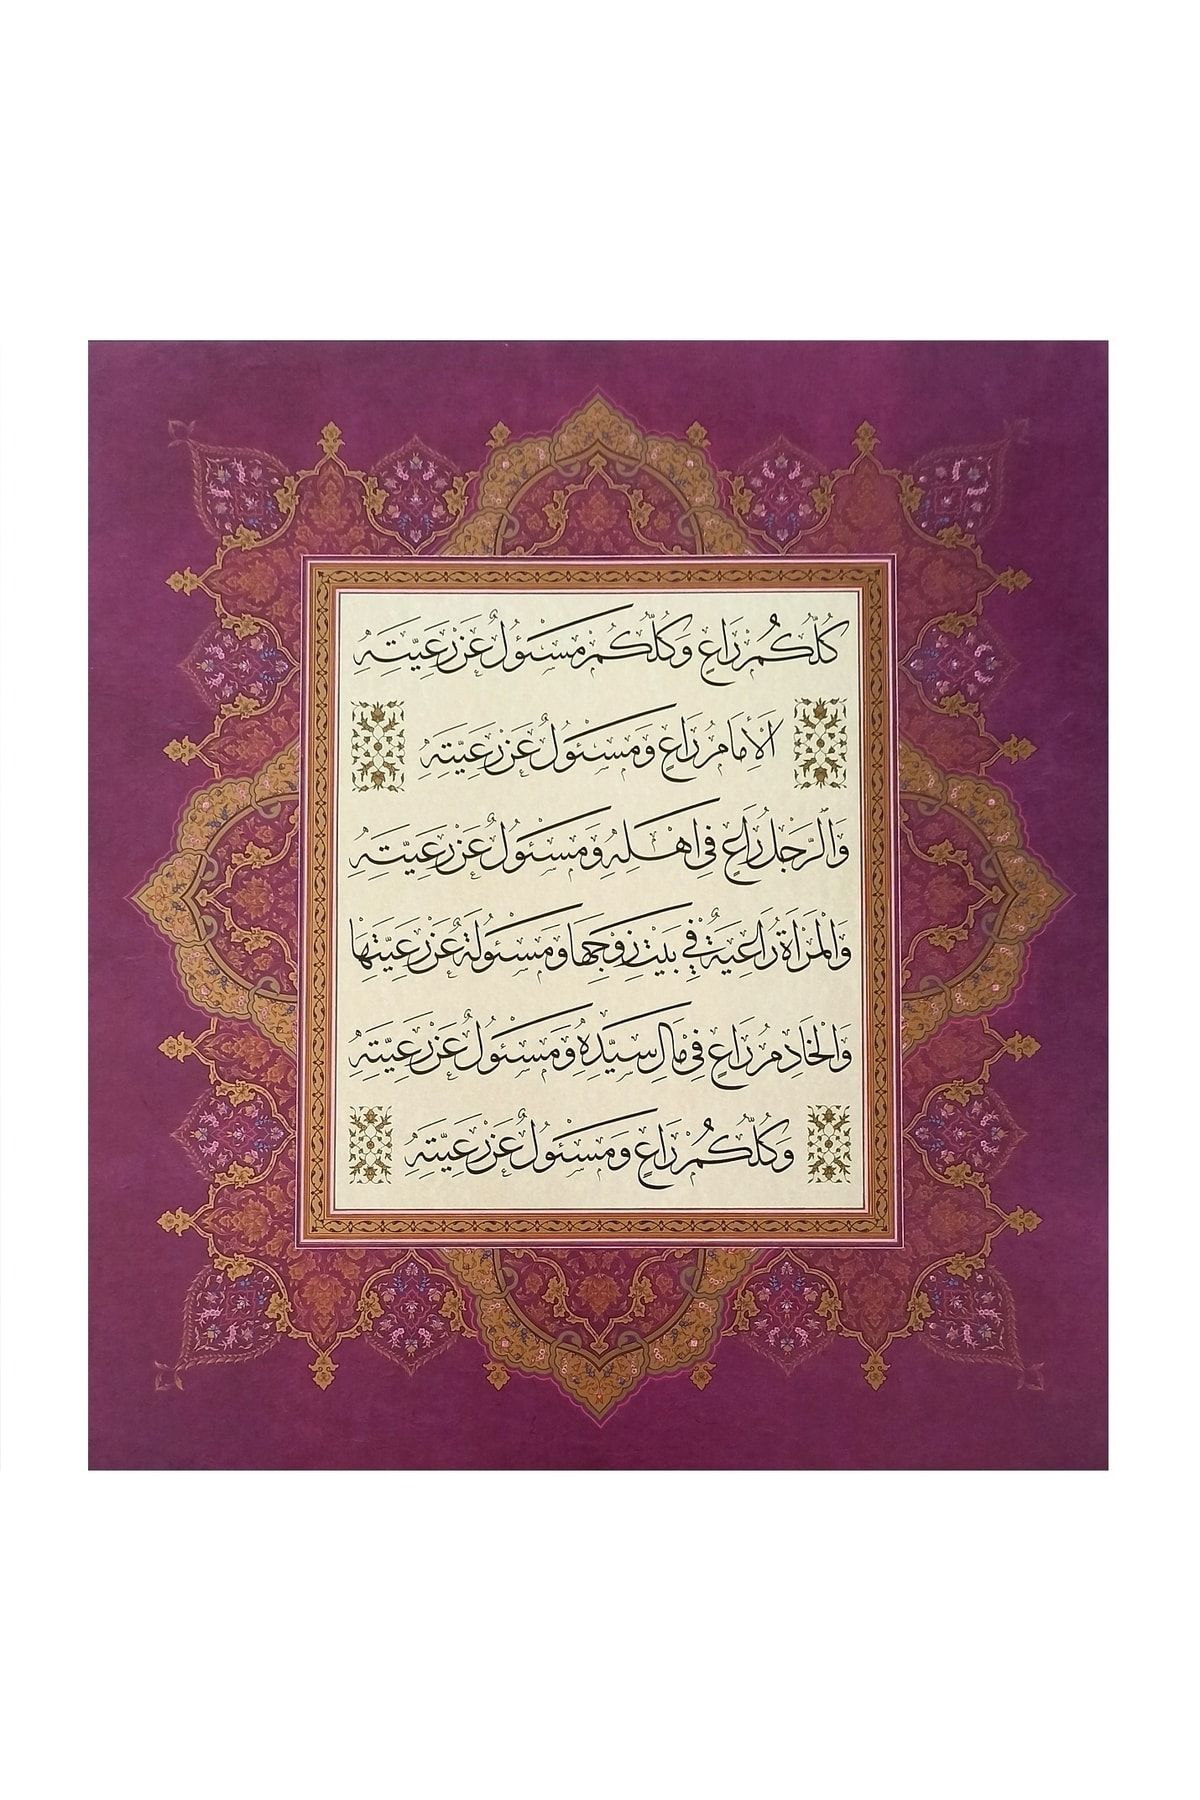 كُلُّكُمْ رَاعٍ وَكُلُّكُمْ مَسْئُولٌ عَنْ رَعِيَّتِهِ
اَلْأِمَامُ رَاعٍ وَمَسْئُولٌ عَنْ رَعِيَّتِهِ
وَالرَّجُلُ رَاعٍ فِى اَهْلِهِ وَمَسْئُولٌ عَنْ رَعِيَّتِهِ
وَالْمَرْاَةُ رَاعِيَةٌ فِى بَيْتِ زَوْجِهَا وَمَسْئُولَةٌ عَنْ رَعِيَّتِهَا
وَالْخَادِمُ رَاعٍ فِى مَالِ سَيِّدِهِ وَمَسْئُولٌ عَنْ رَعِيَّتِهِ
وَكُلُّكُمْ رَاعٍ وَمَسْئُولٌ عَنْ رَعِيَّتِهِ